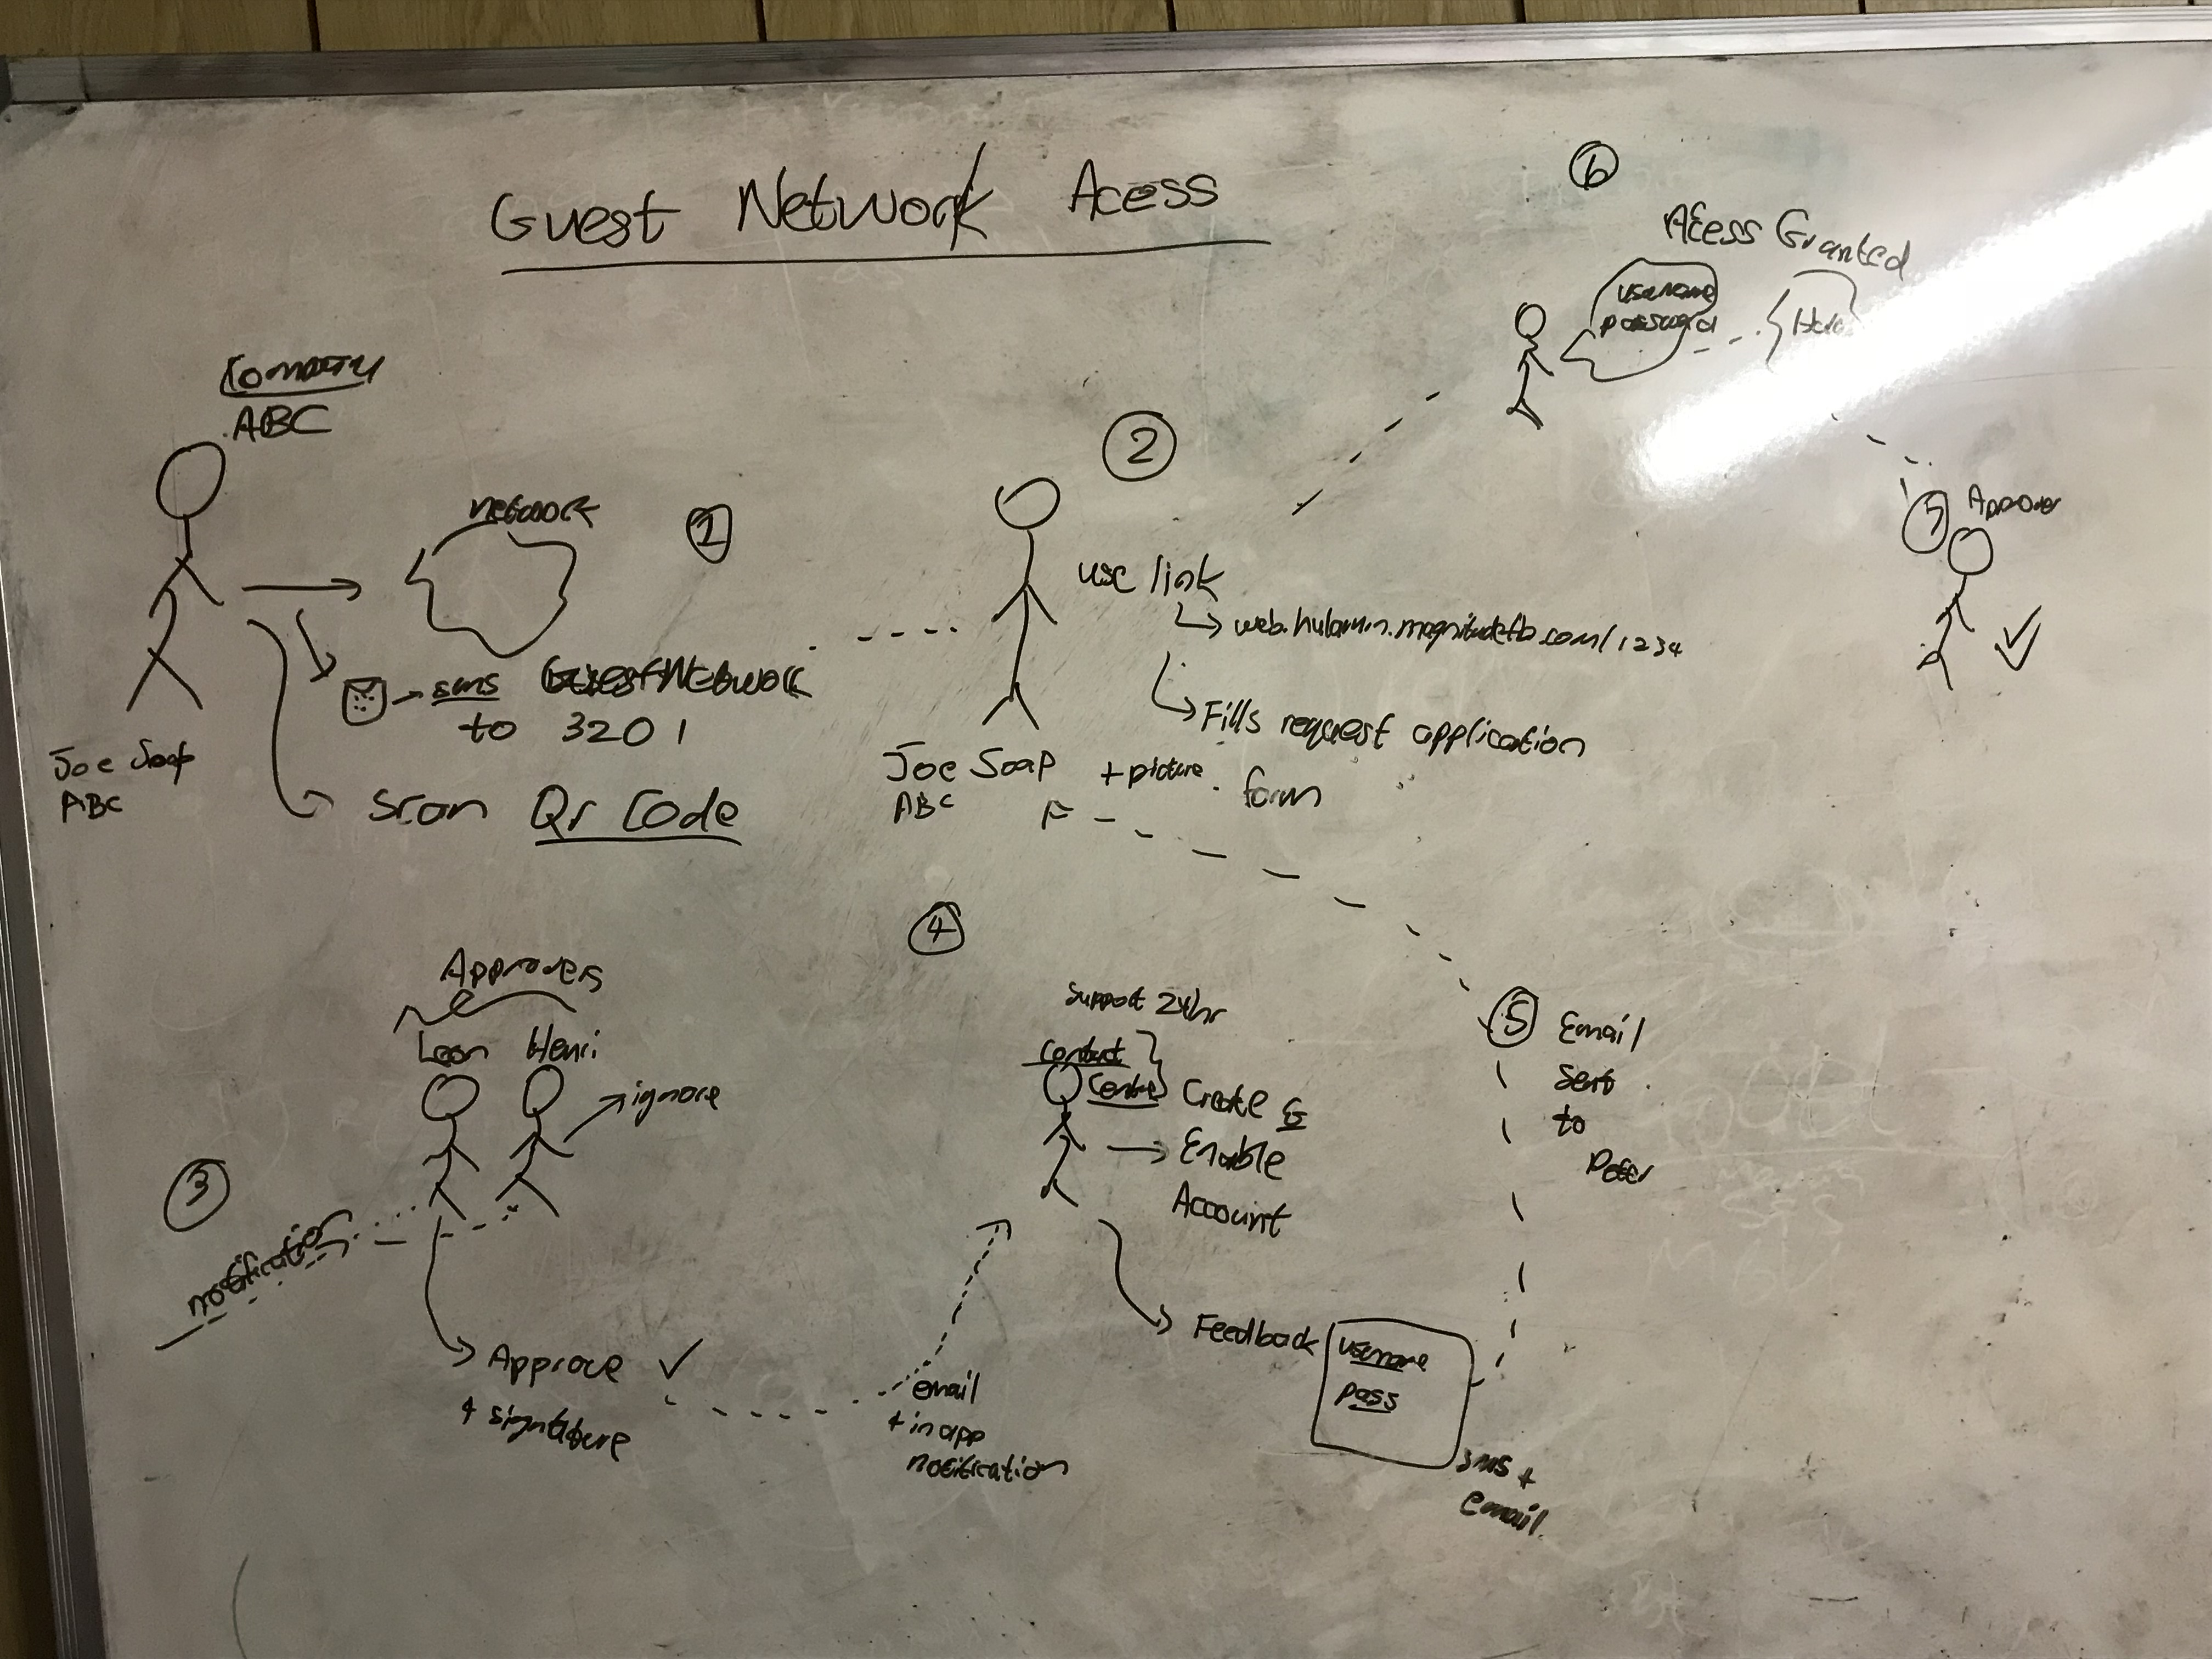 Guest Network Acess
6
Acess Granted
username
password
Company
ABC
network
1
sms GuestNetwork
to 3201
Scan Qr Code
Joe Soap
ABC
2
use link
web.hulamin.magnitudefb.com/1234
Fills request application
form
Joe Soap + picture
ABC
Approver
3
Approvers
Leon Henri
ignore
notification
Approve ✓
+ signature
4
Support 24hr
Contact
Centre
Create &
Enable
Account
email
+ in app
notification
Feedback
username
pass
sms +
email
5 Email
Sent
to